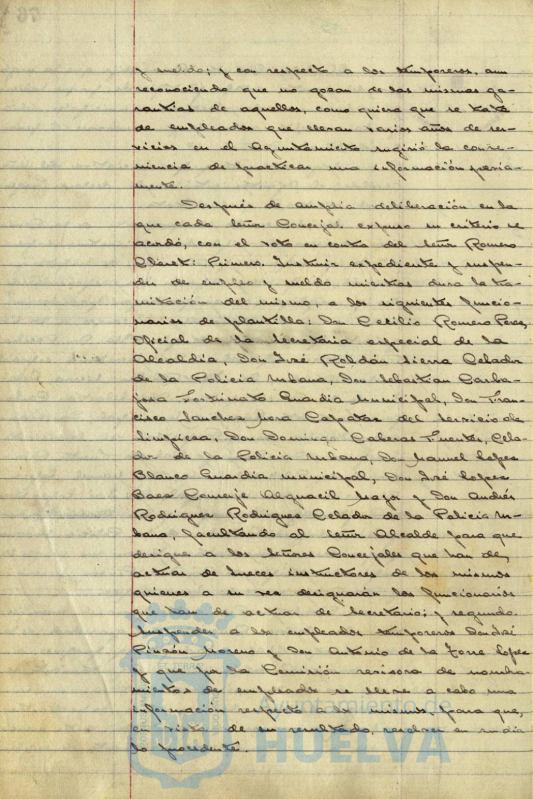 y sueldo; y con respecto a los temporeros, aun
reconociendo que no gozan de las mismas ga-
rantias de aquellos, como quiera que se trata
de empleados que llevan varios años de ser-
vicios en el Ayuntamiento sugirió la conve-
niencia de practicar una información previa-
mente.
Después de amplia deliberación en la
que cada Señor Concejal expuso su criterio se
acordó, con el voto en contra del Señor Romero
Claret: Primero. Instruir expediente y suspen-
der de empleo y sueldo mientras dura la tra-
mitación del mismo, a los siguientes funcio-
narios de plantilla: Don Cecilio Romero Perez,
Oficial de la Secretaria especial de la
Alcaldia, Don José Roldán Sierra Celador
de la Policia Urbana, Don Sebastian Carba-
josa Fortunato Guardia Municipal, Don Fran-
cisco Sanchez Mora Capataz del servicio de
limpieza, Don Domingo Caberas Fuentes, Cela-
dor de la Policia Urbana, Don Manuel Lopez
Blanco Guardia Municipal, Don José Lopez
Baez Conserje Alguacil Mayor y Don Andrés
Rodriguez Rodriguez Celador de la Policia Ur-
bana, facultando al Señor Alcalde para que
designe a los Señores Concejales que han de
actuar de Jueces instructores de los mismos
quienes a su vez designarán los funcionarios
que han de actuar de Secretario; y segundo.
Suspender a los empleados temporeros Don José
Pinzón Moreno y Don Antonio de la Torre Lopez
y que por la Comisión revisora de nombra-
mientos de empleados se lleve a cabo una
información respecto a los mismos, para que,
en vista de su resultado, resolver en su dia
lo procedente.
Ayuntamiento de
HUELVA